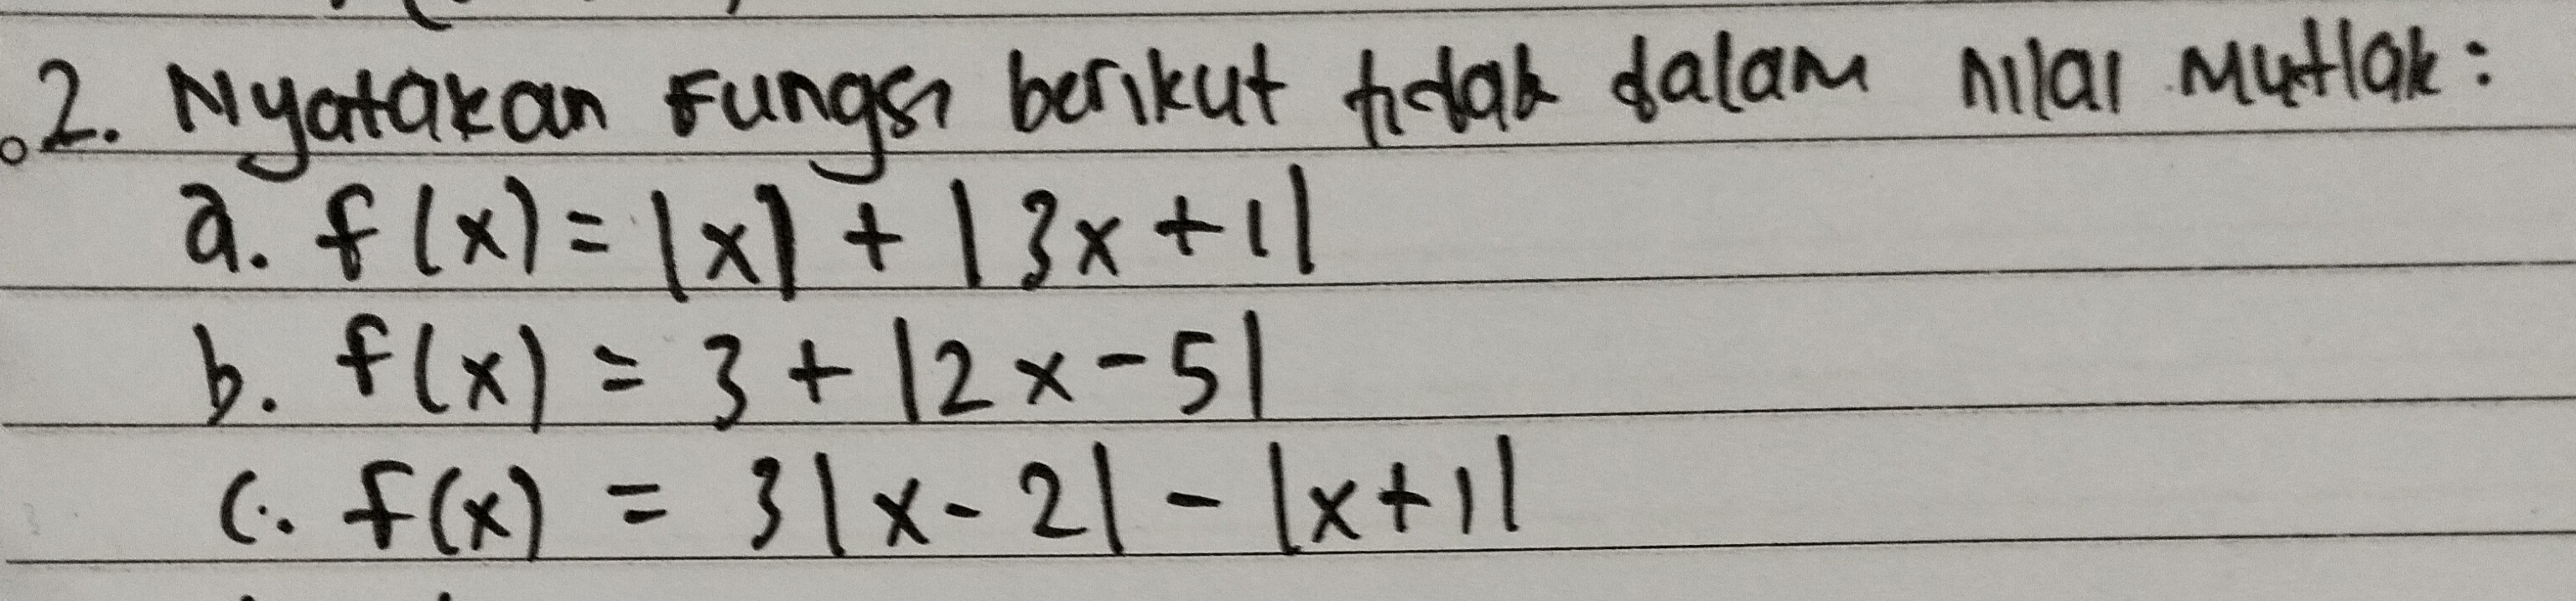 2. Nyatakan Fungsi berikut tidak dalam nilai Mutlak:
a. f(x) = |x| + |3x+1|
b. f(x) = 3 + |2x-5|
c. f(x) = 3|x-2| - |x+1|